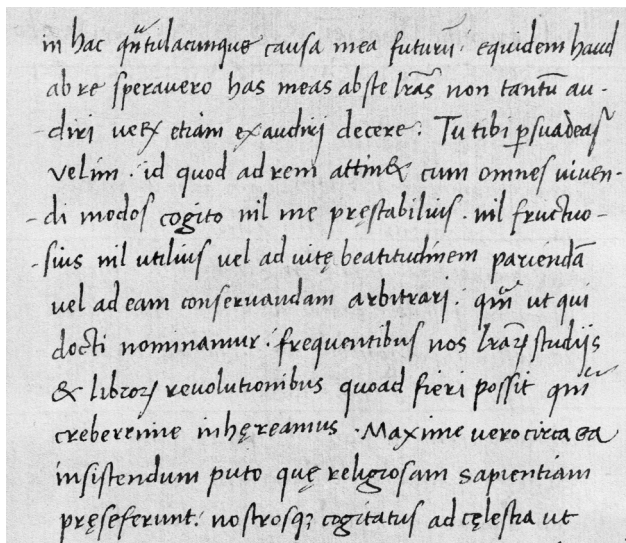 in hac qñtulacunque causa mea futurũ: equidem haud
ab re speravero has meas abste lrãs non tantũ au-
diri uerꝝ etiam exaudiri decere: Tu tibi ꝑsuadeas
velim. id quod ad rem attin& cum omnes viven-
di modos cogito nil me pręstabilius. nil fructuo-
sius nil utilius vel ad vitę beatitudinem pariendã
vel ad eam conservandam arbitrari. qm̃ ut qui
docti nominamur. frequentibus nos lrãrꝝ studijs
& librorꝝ revolutionibus quoad fieri possit qm̃
creberrime inhęreamus. Maxime vero circa ea
insistendum puto quę religiosam sapientiam
pręseferunt: nostrosqꝫ cogitatus ad cęlestia ut